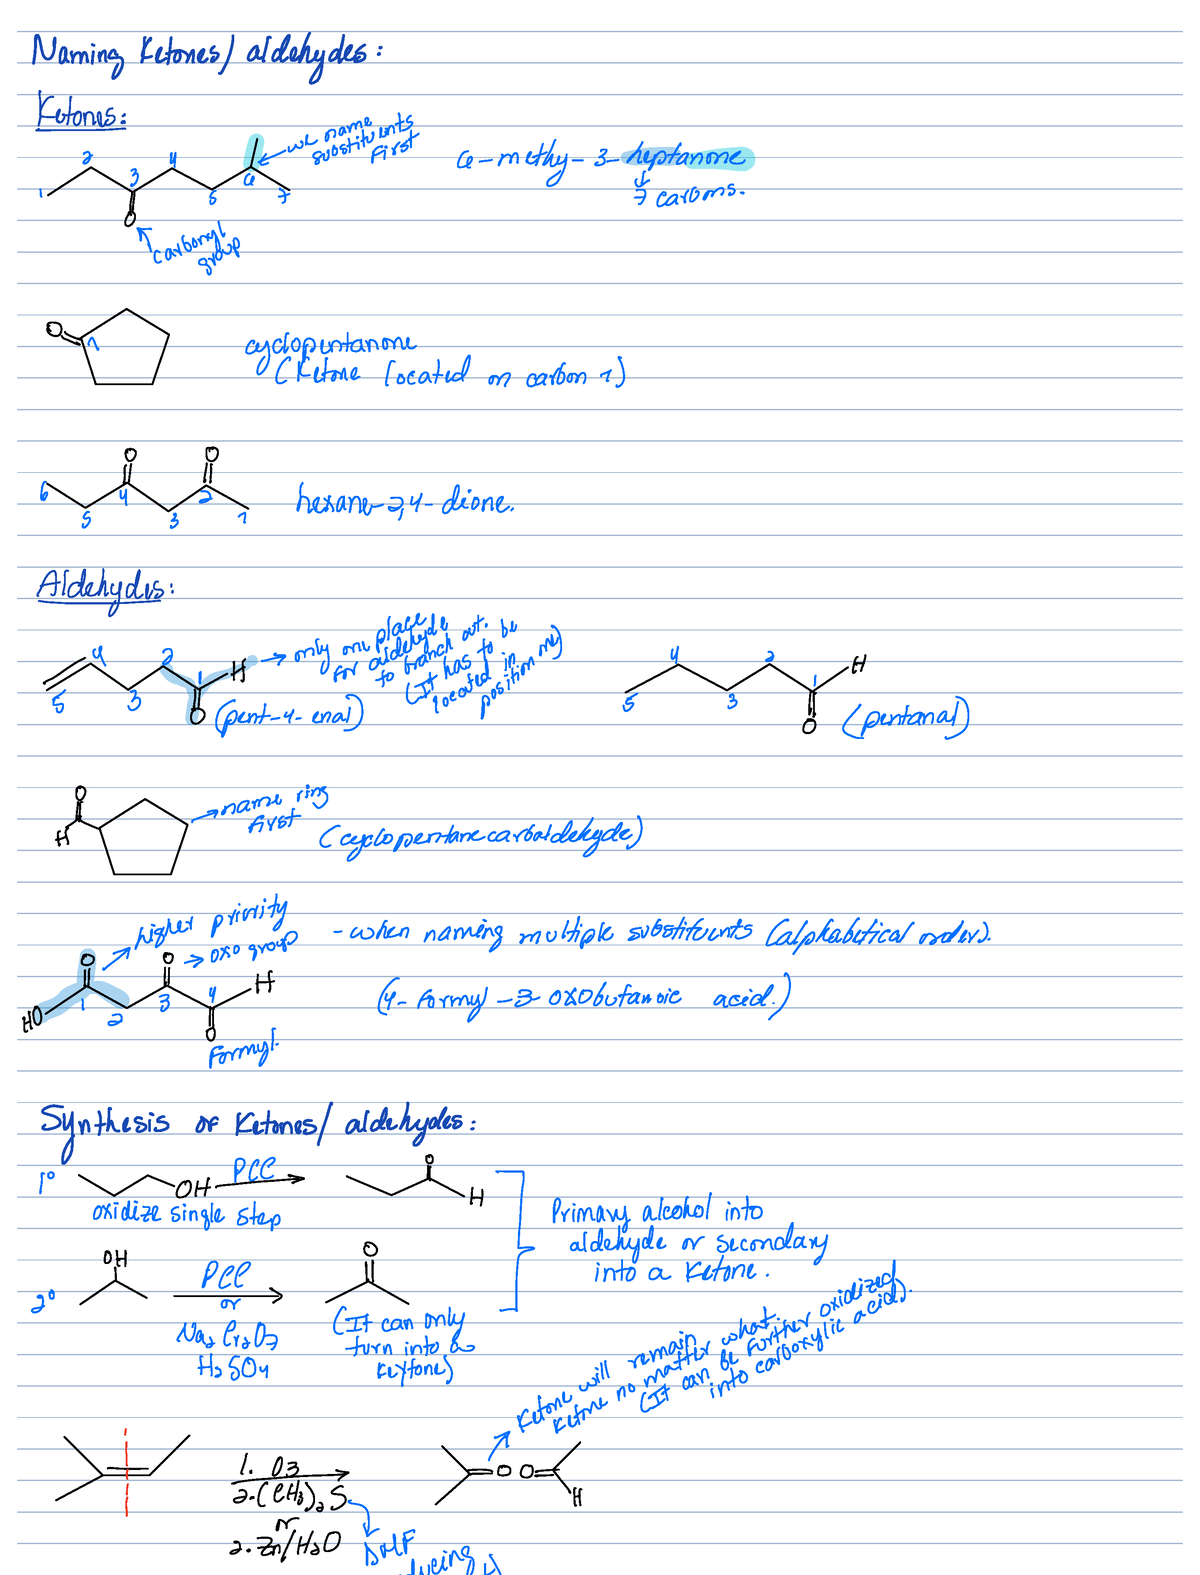 Naming Ketones/aldehydes:
Ketones:
1 2 3 4 5 6 7
O
we name
substituents
First
carbonyl
group
6-methy-3-heptanone
7 carbons.
O
1
cyclopentanone
(Ketone located on carbon 1)
O O
6 5 4 3 2 1
hexane-2,4-dione.
Aldehydes:
5 4 3 2 1 H
O
only one place
for aldehyde
to branch out.
(It has to be
located in
position one)
(pent-4-enal)
5 4 3 2 1 H
O
(pentanal)
O
H
name ring
first
(cyclopentanecarbaldehyde)
higher priority
oxo group
O O H
HO 1 2 3 4
O
Formyl.
- when naming multiple substituents (alphabetical order).
(4-formyl-3-oxobutanoic acid.)
Synthesis of Ketones/aldehydes:
1° OH PCC O H
oxidize single step
2° OH PCC O
or
Na2Cr2O7
H2SO4
(It can only
turn into a
Keytone)
Primary alcohol into
aldehyde or secondary
into a Ketone.
Ketone will remain
Ketone no matter what.
(It can be further oxidized
into carboxylic acid).
1. O3
2.(CH3)2S
or
2. Zn/H2O
O O
H